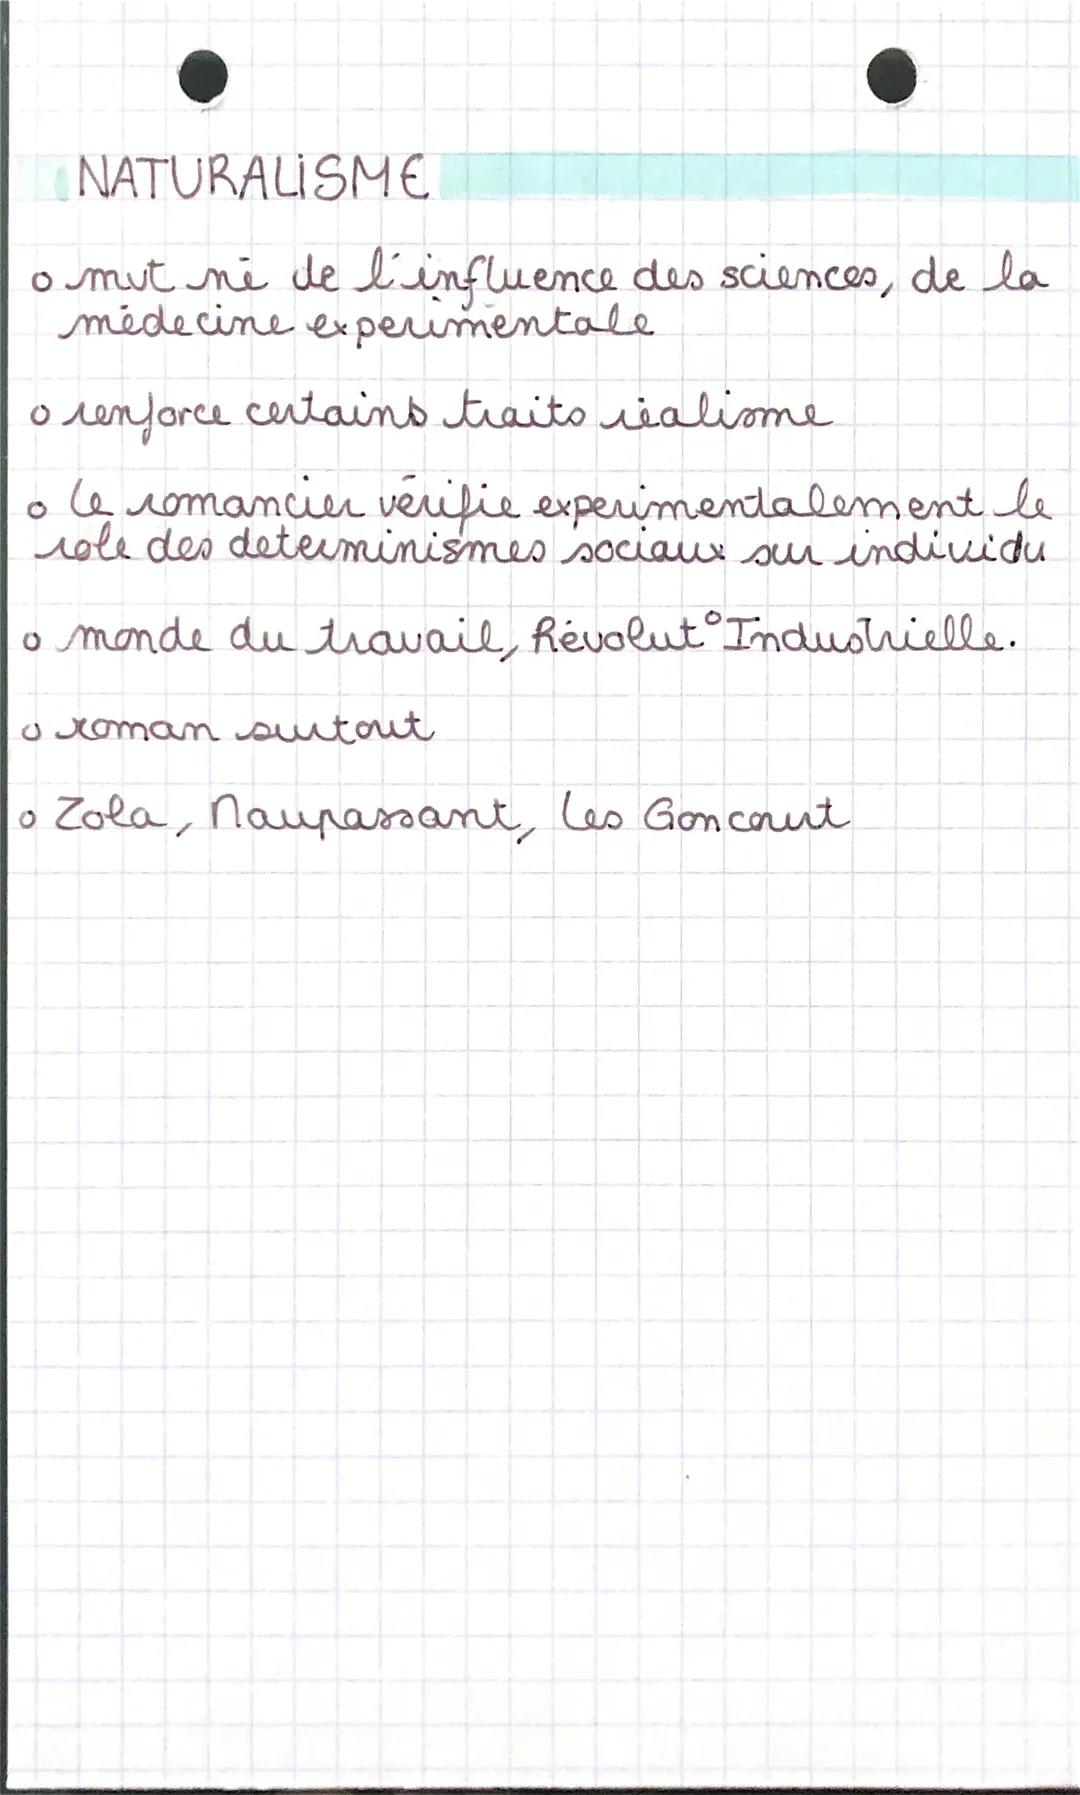 NATURALISME
o mvt né de l'influence des sciences, de la
médecine expérimentale
o renforce certains traits réalisme
o le romancier vérifie expérimentalement le
role des déterminismes sociaux sur individu
o monde du travail, Révolut° Industrielle.
o roman surtout
o Zola, Maupassant, les Goncourt